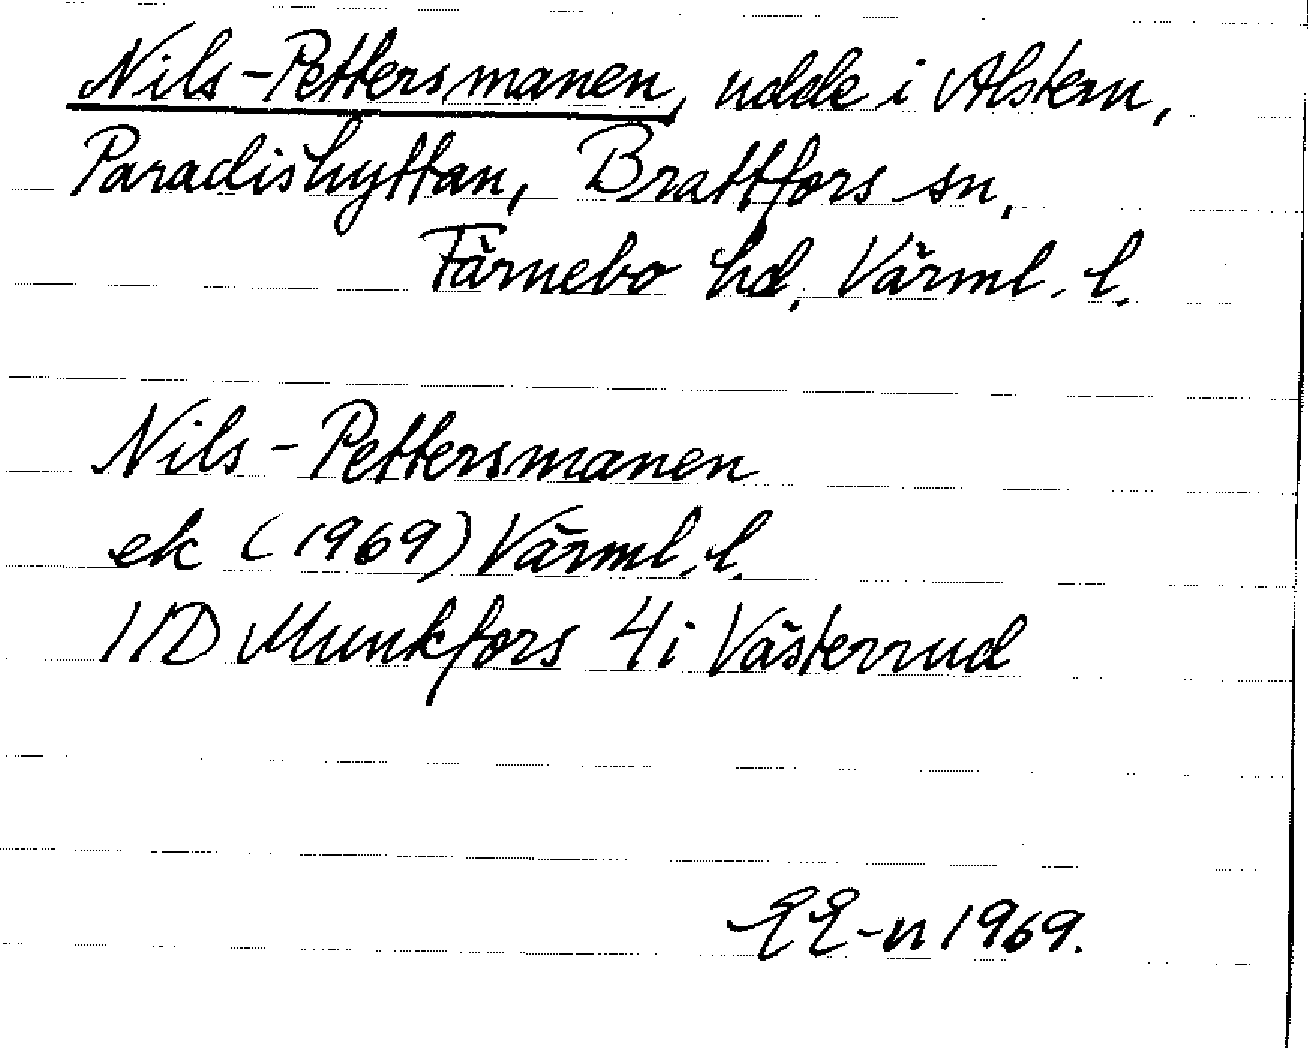 Nils-Pettersmanen, udde i Alstern,
Paradishyttan, Brattfors sn,
Färnebo hd, Värml. l.
Nils-Pettersmanen
ek (1969) Värml. l.
11D Munkfors 4i Västerrud
EE-n 1969.